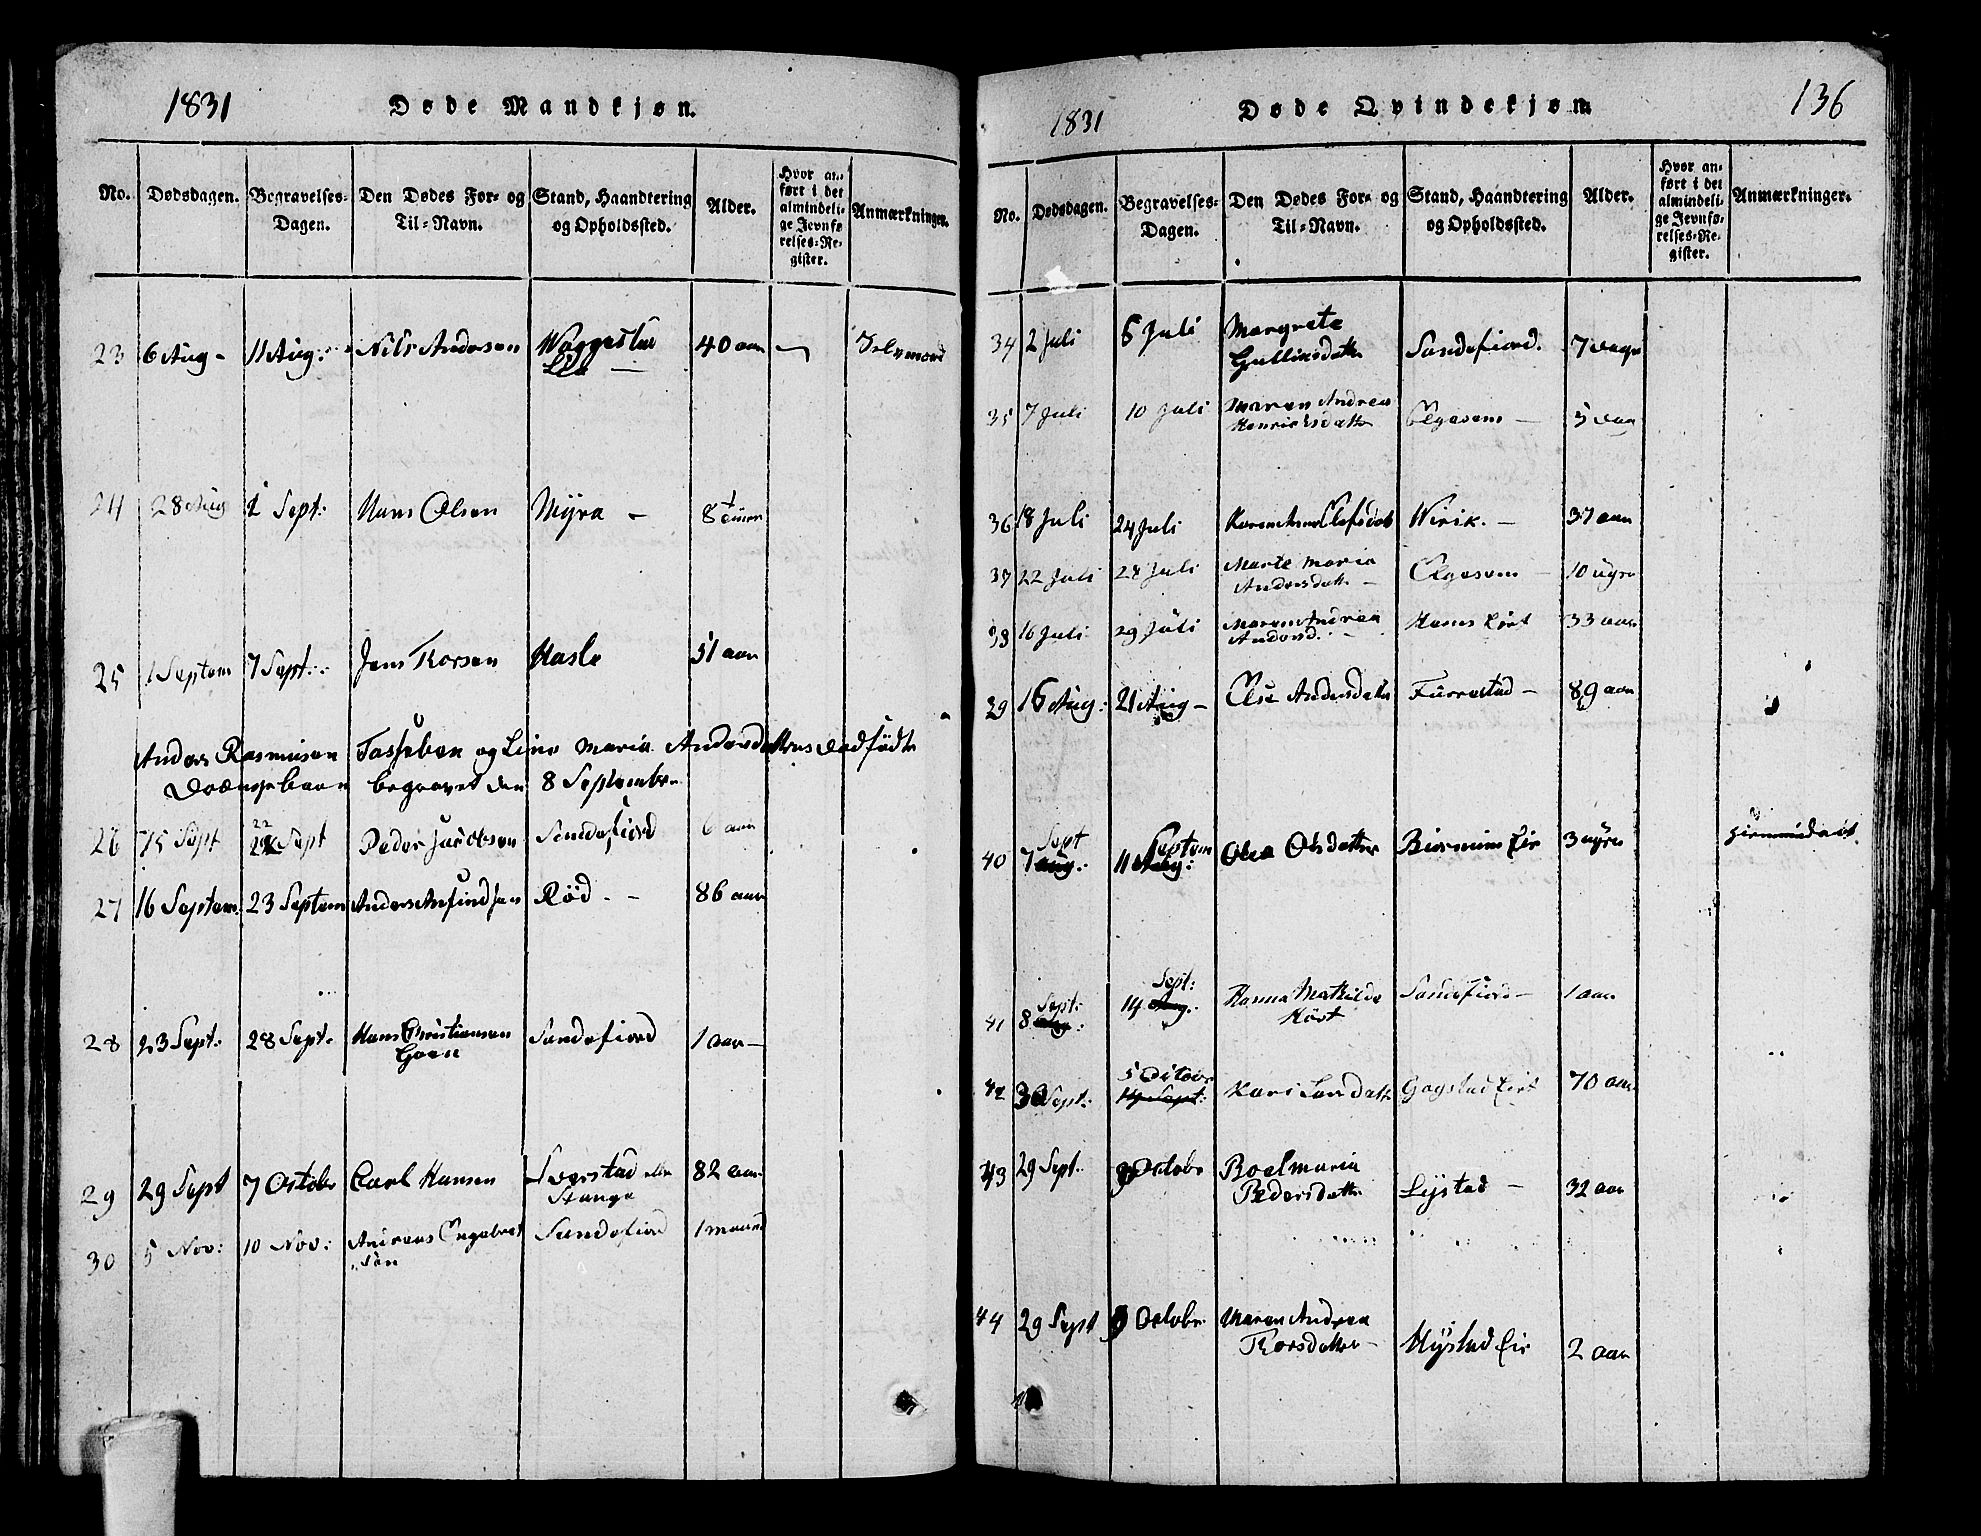 1831 Døde Mandkjøn.
No. Dødsdagen. Begravelses-Dagen. Den Dødes For- og Til-Navn. Stand, Haandtering og Opholdssted. Alder. Hvor anført i det almindelige Jevnførelses-Register. Anmærkninger.
23 6 Aug - 11 Aug: Nils Andersen 40 aar
24 28 Aug Sept: Hans Olsen Myra - 8
25 1 Septem 7 Sept: Jens Thorsen Hasle 51 aar
Anders Rasmusen Tassebæk og Line Maria Andersdatters dødfødte
Drængebarn begravet den 8 September
26 15 Sept 22 Sept Peder Jacobsen Sandefiord 6 aar
27 16 Septem. 23 Septem Anders Arfindsen Rød - 86 aar
28 23 Sept: 28 Sept. Hans Christiansen Sandefiord 1 aar -
Goen
29 29 Sept 7 Octobr Carl Hansen 82 aar
Stange
30 5 Nov: 10 Nov: Andreas Engebret Sandefiord 1 maaned
søn
1831 Døde Qvindekjøn. 136
No. Dødsdagen. Begravelses-Dagen. Den Dødes For- og Til-Navn. Stand, Haandtering og Opholdssted. Alder. Hvor anført i det almindelige Jevnførelses-Register. Anmærkninger.
34 2 Juli 6 Juli Margrete Sandefiord. 7 Dage
Gullixsdatter
35 7 Juli 10 Juli Maren Andrea Elgesem - 5 aar
Henrichsdatter
36 18 Juli 24 Juli Karen Olefsdat Virik. - 37 aar
37 22 Juli 24 Juli Marte Maria Elgesem - 10 uger
Andersdatter -
38 16 Juli 29 Juli Maren Andrea 33 aar
Andersd. -
39 16 Aug: 21 Aug - Else Andersdatter Furrestad - 89 aar
Sept Septem
40 7 Aug. 11 Aug: Olea Olsdatter 3 uger hiemmedøbt.
Sept: Sept:
41 8 Aug: 14 Aug. Hanna Mathilde Sandefiord - 1 aar
5 Octobr
42 30 Sept: 14 Sept: Kari Larsdatter Gogstad Eiet 70 aar
43 29 Sept. 9 Octobr Boel Maria
Pedersdatter Lystad - 32 aar
44 29 Sept 9 Octobr. Maren Andrea
Thorsdatter - Hystad Eie 2 aar